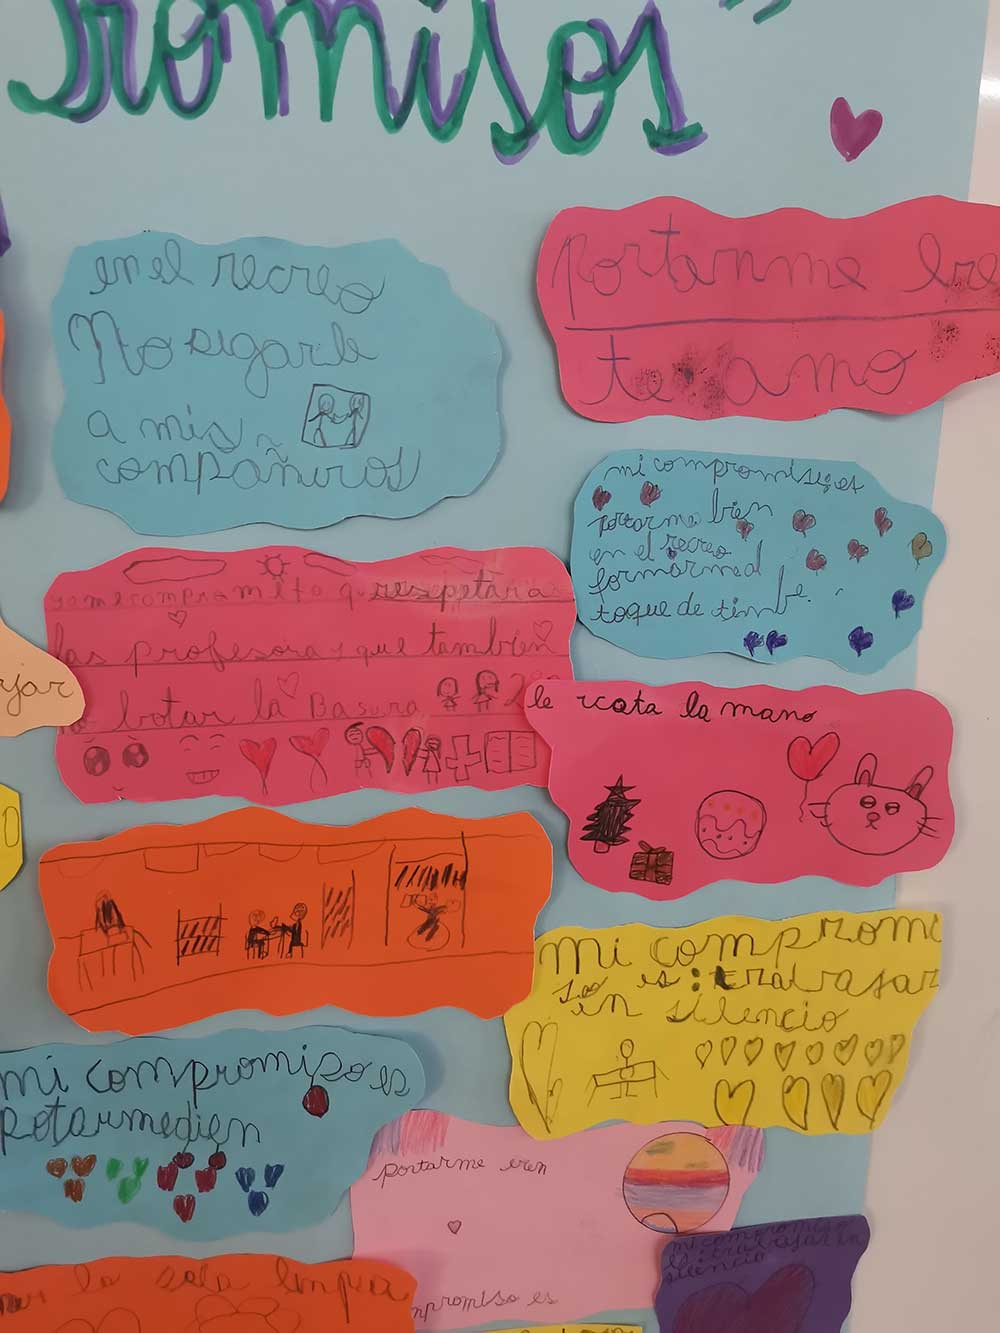 romisos"
en el recreo
No sigarle
a mis
compañiros
portarnme
te amo
mi compromiso es
portarme bien
en el recreo
formarme al
toque de timbe.
yo me compromito q resepetar a
las profesora y que también
no botar la Basura
rjar
le rcata la mano
mi compromi
so es: trabasar
in silencio
mi compromiso es
potarmedien
portarme eren
mpromiso es
mi compromiso
es trabajar in
silencio
la sala limpia